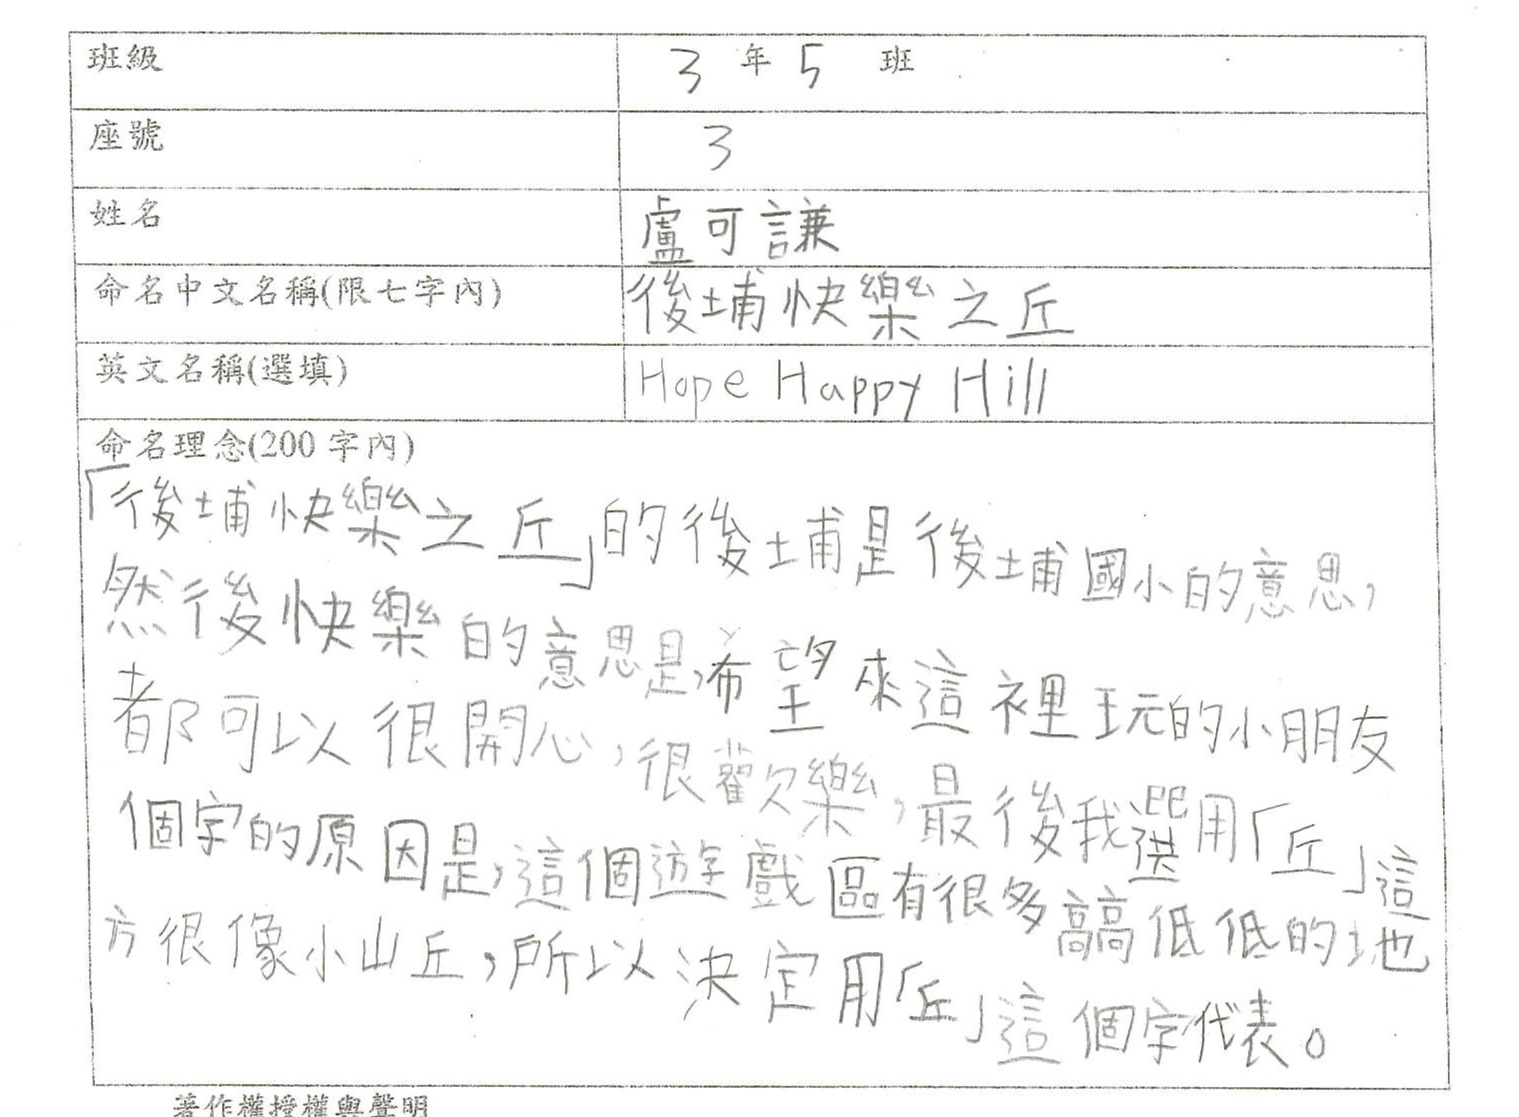 班級 3 年 5 班
座號 3
姓名 盧可謙
命名中文名稱(限七字內) 後埔快樂之丘
英文名稱(選填) Hope Happy Hill
命名理念(200 字內)
「後埔快樂之丘」的後埔是後埔國小的意思,
然後快樂的意思是,希望來這裡玩的小朋友
都可以很開心,很歡樂,最後我選用「丘」這
個字的原因是,這個遊戲區有很多高高低低的地
方很像小山丘,所以決定用「丘」這個字代表。
著作權授權與聲明